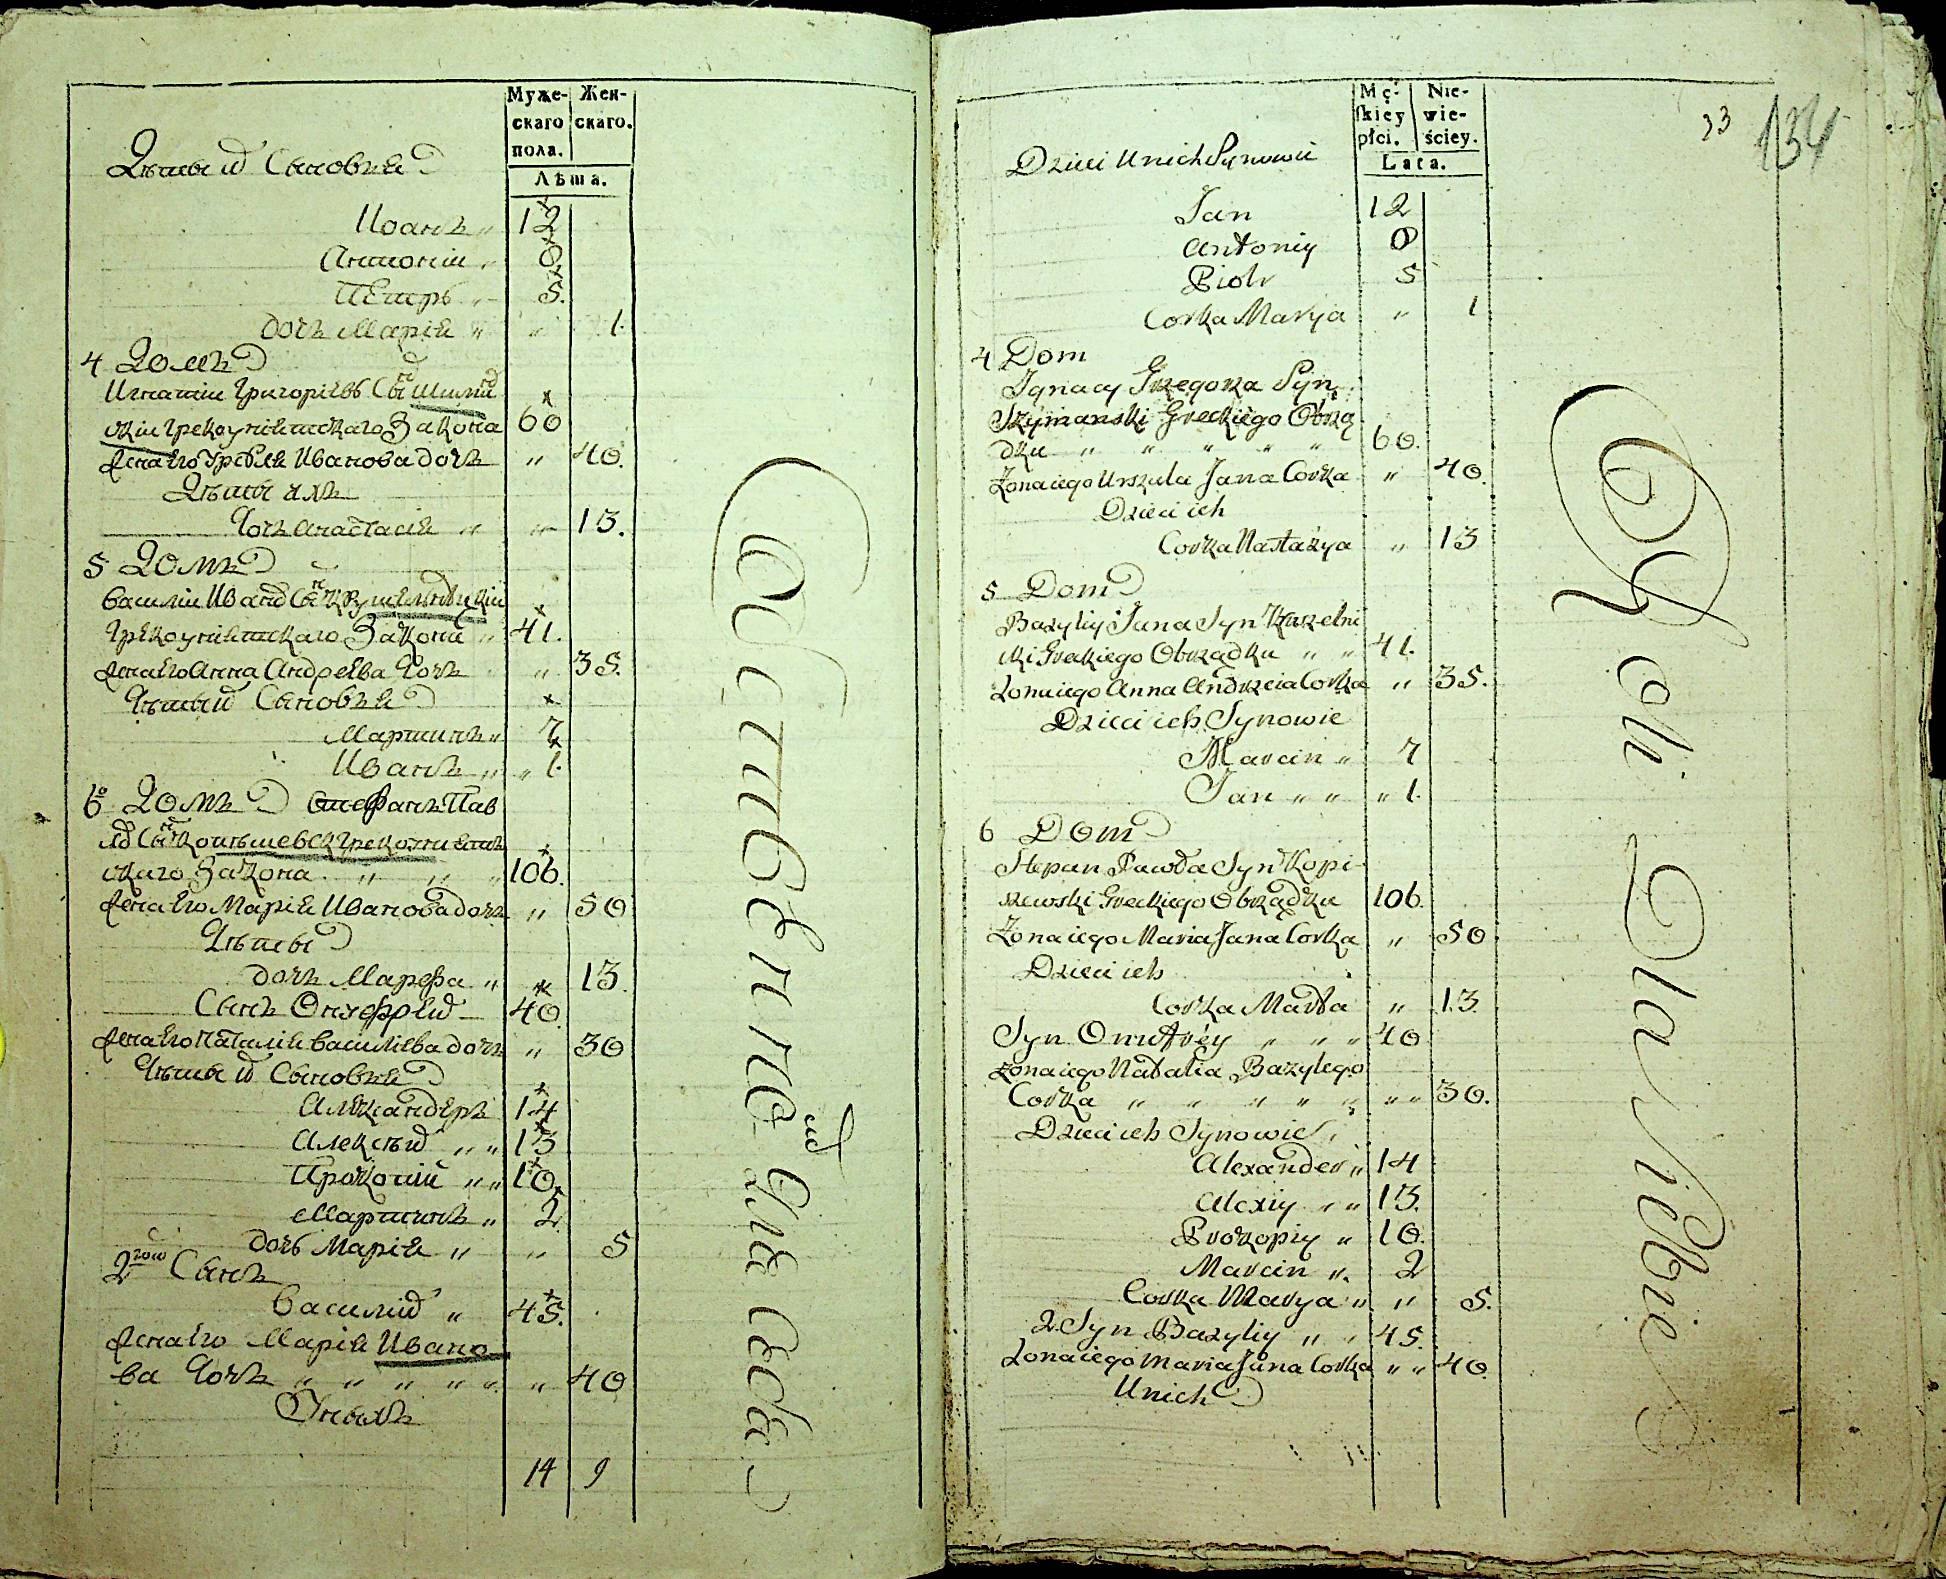 Муже-
скаго
пола.
Жен-
скаго.
Лѣта.
Дѣты Ихъ Сыновья
Иоанъ „ 12
Антоній „ 8
Петръ „ 5.
дочь Марія „ „ 1.
4 Домъ
Игнатіи Григоріевъ Сынъ Шиман
скіи Грекоуніятскаго Закона 60
Жена Его Урсуля Иванова дочь „ 40.
Дѣты ихъ
Дочь Анастасія „ „ 13.
5 Домъ
Василіи Иванъ Сынъ
Грекоуніятскаго Закона „ 41.
Жена Его Анна Андреева Дочь „ 35.
Дѣты Ихъ Сыновья
Мартинъ „ 7
Иванъ „ „ 1.
6 Домъ Стефанъ Пав
Грекоуніятс
каго Закона „ „ „ 106.
Жена Его Марія Иванова дочь „ 50
Дѣты
дочь Марфа „ 13.
Сынъ Онуфреій 40
Жена Его Наталія Василіева дочь „ 30
Дѣты Ихъ Сыновья
Александеръ 14
Алексѣй „ „ 13
Прокопій „ „ 10.
Мартинъ „ 2
дочь Марія „ „ 5
2 Сынъ
Василій „ 45.
Жена Его Марія Ивано
ва Дочь „ „ „ „ „ „ 40
У Ныхъ
14 9
Mę-
skiey
płci.
Nie-
wie-
ściey.
Lata.
33
134
Dzieci Unich Synowie
Jan 12
Antoniy 8
Piotr 5
Corka Marya „ 1
4 Dom
Ignacy Grzegorza Syn
Szymanski Greckiego Obrzą
dku „ „ „ „ „ 60.
Żona iego Urszula Jana Corka „ 40.
Dzieci ich
Corka Nastazya „ 13
5 Dom
Bazyliy Jana Syn Kruszelni
cki Greckiego Obrządku „ „ 41.
Zona iego Anna Andrzeia Corka „ 35.
Dzieci ich Synowie
Marcin „ 7
Jan „ „ „ 1.
6 Dom
Stepan Pawła Syn Kopi
szewski Greckiego Obrządku 106.
Żona iego Maria Jana Corka „ 50.
Dzieci ich
Corka Marta „ 13.
Syn Onufrey „ „ „ 40
Zona iego Natalia Bazylego
Corka „ „ „ „ „ „ „ 30.
Dzieci ich Synowie
Alexander „ 14
Alexiy „ „ 13.
Prokopiy „ 10.
Marcin „ 2
Corka Marya „ „ 5.
2. Syn Bazyliy „ „ 45.
Zona iego Maria Jana Corka „ „ 40.
Unich